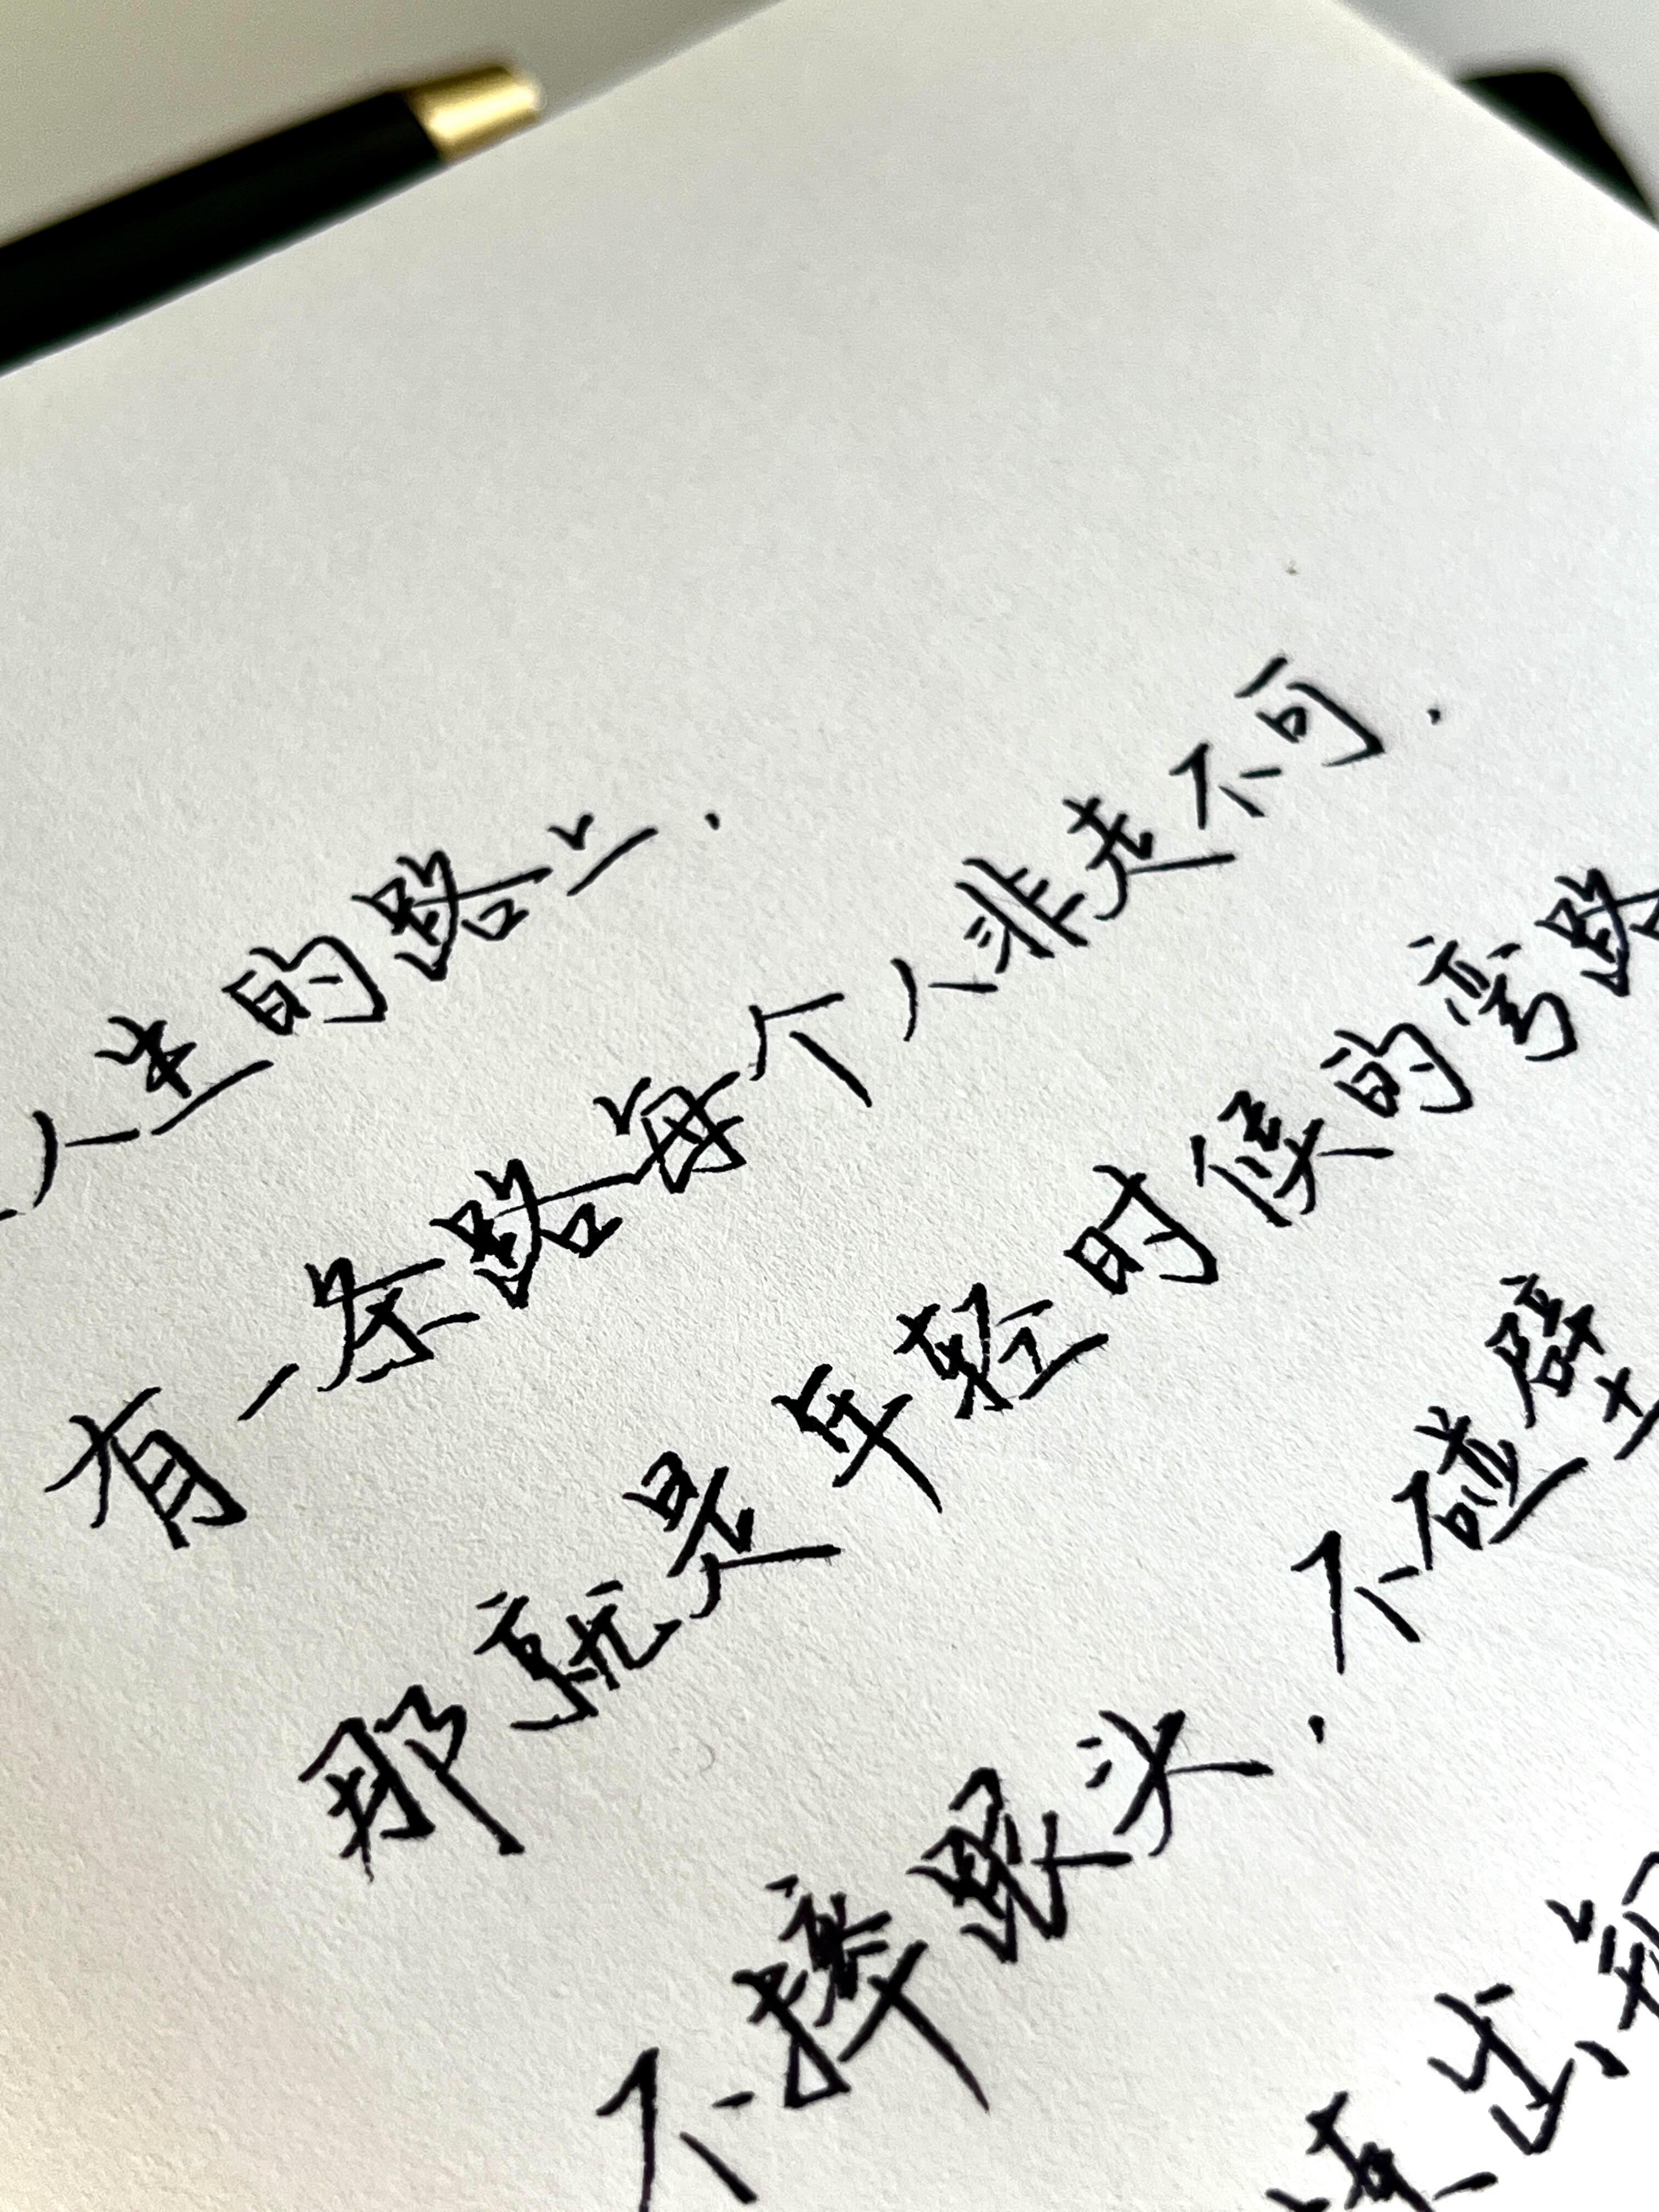 人生的路上.
有一条路每个人非走不可.
那就是年轻时候的弯路
不摔跟头.不碰壁